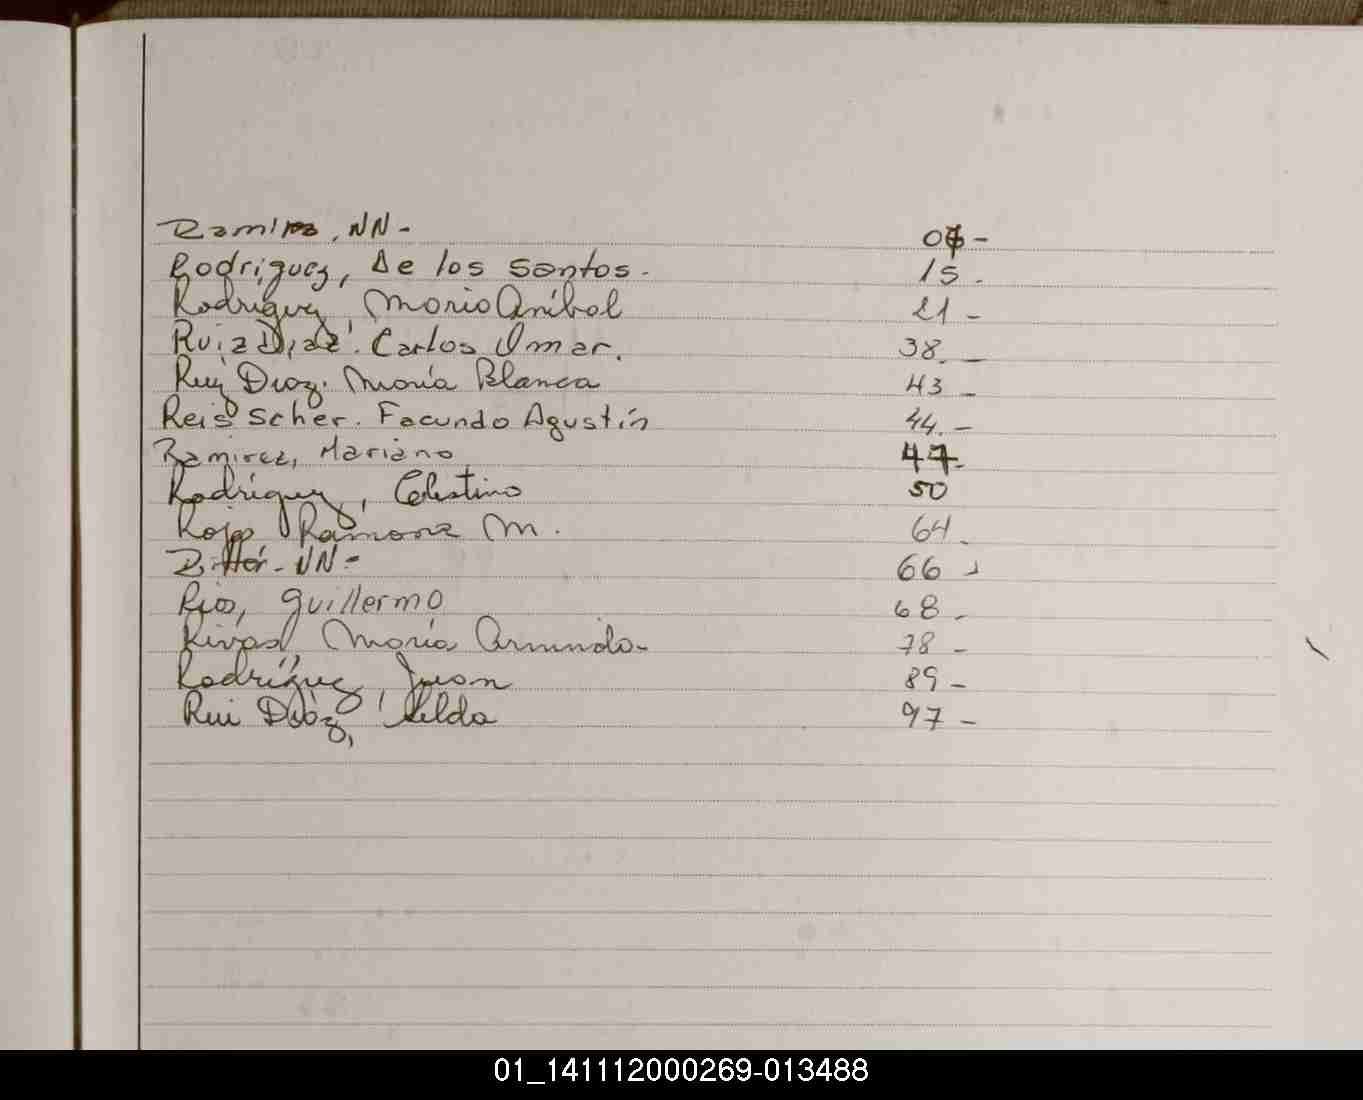 Ramirez, NN- 06-
Rodriguez, De los santos. 15-
Rodriguez, Mario Anibal 21-
Ruiz Diaz. Carlos Omar. 38.-
Ruiz Diaz. María Blanca 43-
Reisscher. Facundo Agustín 44.-
Ramirez, Mariano 47-
Rodriguez, Celestino 50
Rojas Ramona M. 64-
Ritter- NN- 66-
Rios, Guillermo 68-
Rivas, María 78-
Rodríguez, Juan 89-
Rui Diaz, 97-
01_141112000269-013488